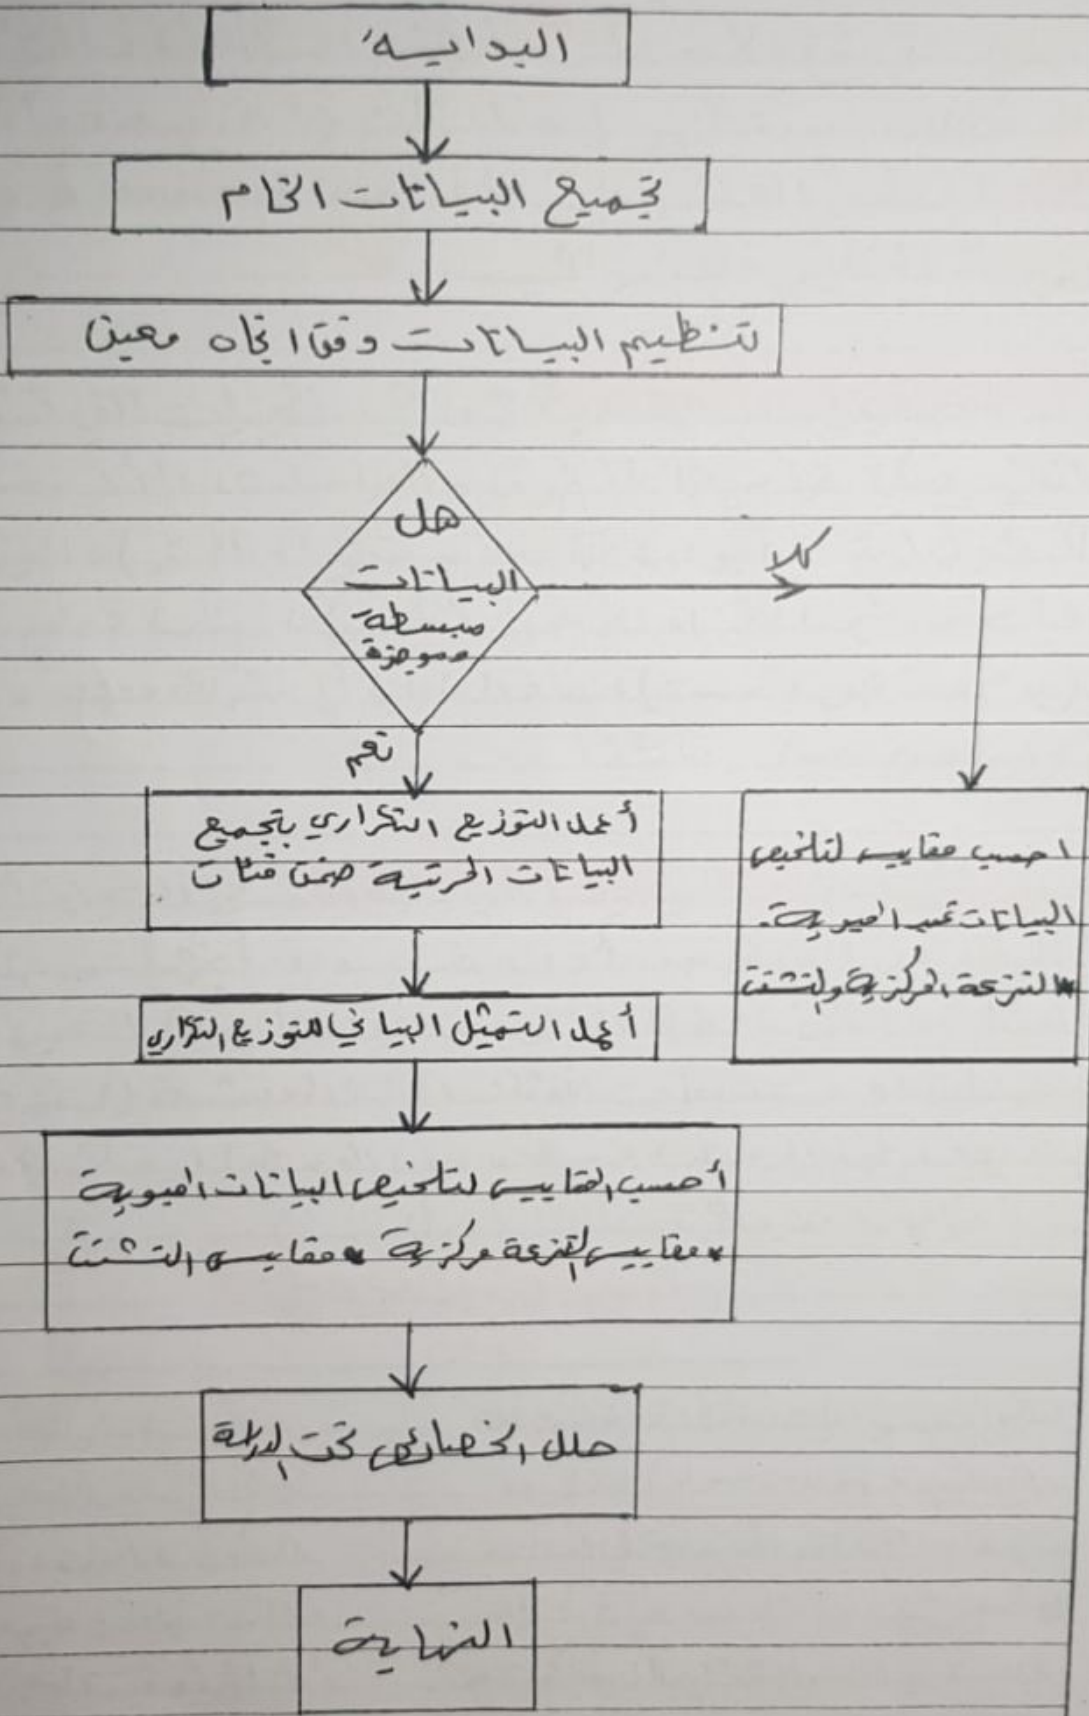 البداية
تجميع البيانات الخام
تنظيم البيانات وفق اتجاه معين
هل
البيانات
مبسطة
وموجزة
كلا
نعم
أعمل التوزيع التكراري بتجميع
البيانات المرتبة ضمن فئات
احسب مقاييس لتلخيص
البيانات غير المبوبة.
* النزعة المركزية والتشتت
أعمل التمثيل البياني للتوزيع التكراري
أحسب المقاييس لتلخيص البيانات المبوبة
* مقاييس النزعة مركزية * مقاييس التشتت
حلل الخصائص تحت الدراسة
النهاية